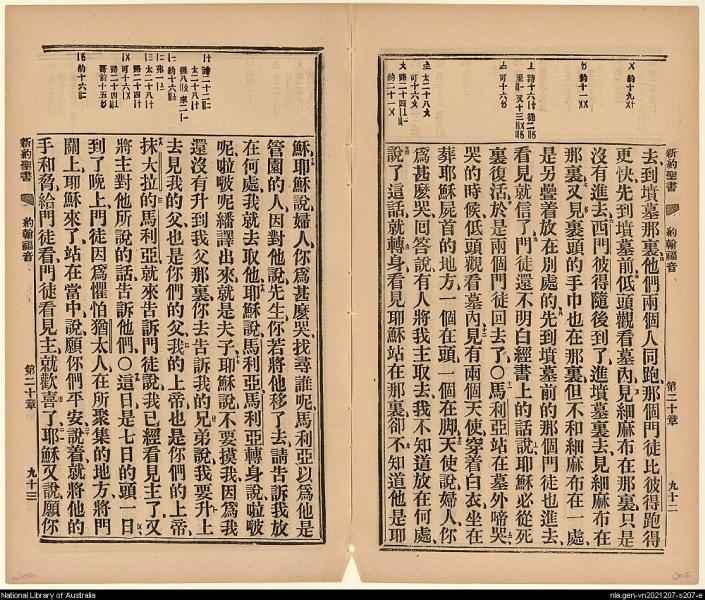 新約聖書
約翰福音
第二十章
九十二
去到墳墓那裏他們兩個人同跑那個門徒比彼得跑得
更快先到墳墓前低頭觀看墓內見細麻布在那裏只是
沒有進去西門彼得隨後到了進墳墓裏去見細麻布在
那裏又見裏頭的手巾也在那裏但不和細麻布在一處
是另疊着放在別處的先到墳墓前的那個門徒也進去
看見就信了門徒還不明白經書上的話說耶穌必從死
裏復活於是兩個門徒回去了〇馬利亞站在墓外啼哭
哭的時候低頭觀看墓內見有兩個天使穿着白衣坐在
葬耶穌屍首的地方一個在頭一個在脚天使說婦人你
爲甚麽哭回答說有人將我主取去我不知道放在何處
說了這話就轉身看見耶穌站在那裏卻不知道他是耶
穌耶穌說婦人你爲甚麽哭找尋誰呢馬利亞以爲他是
管園的人因對他說先生你若將他移了去請告訴我放
在何處我就去取他耶穌說馬利亞馬利亞轉身說啦啵
呢啦啵呢繙譯出來就是夫子耶穌說不要摸我因爲我
還沒有升到我父那裏你去告訴我的兄弟說我要升上
去見我的父也是你們的父我的上帝也是你們的上帝
抹大拉的馬利亞就來告訴門徒說我已經看見主了又
將主對他所說的話告訴他們〇這日是七日的頭一日
到了晚上門徒因爲懼怕猶太人在所聚集的地方將門
關上耶穌來了站在當中說願你們平安說着就將他的
手和脅給門徒看門徒看見主就歡喜了耶穌又說願你
新約聖書
約翰福音
第二十章
九十三
National Library of Australia
nla.gen-vn2021207-s207-e